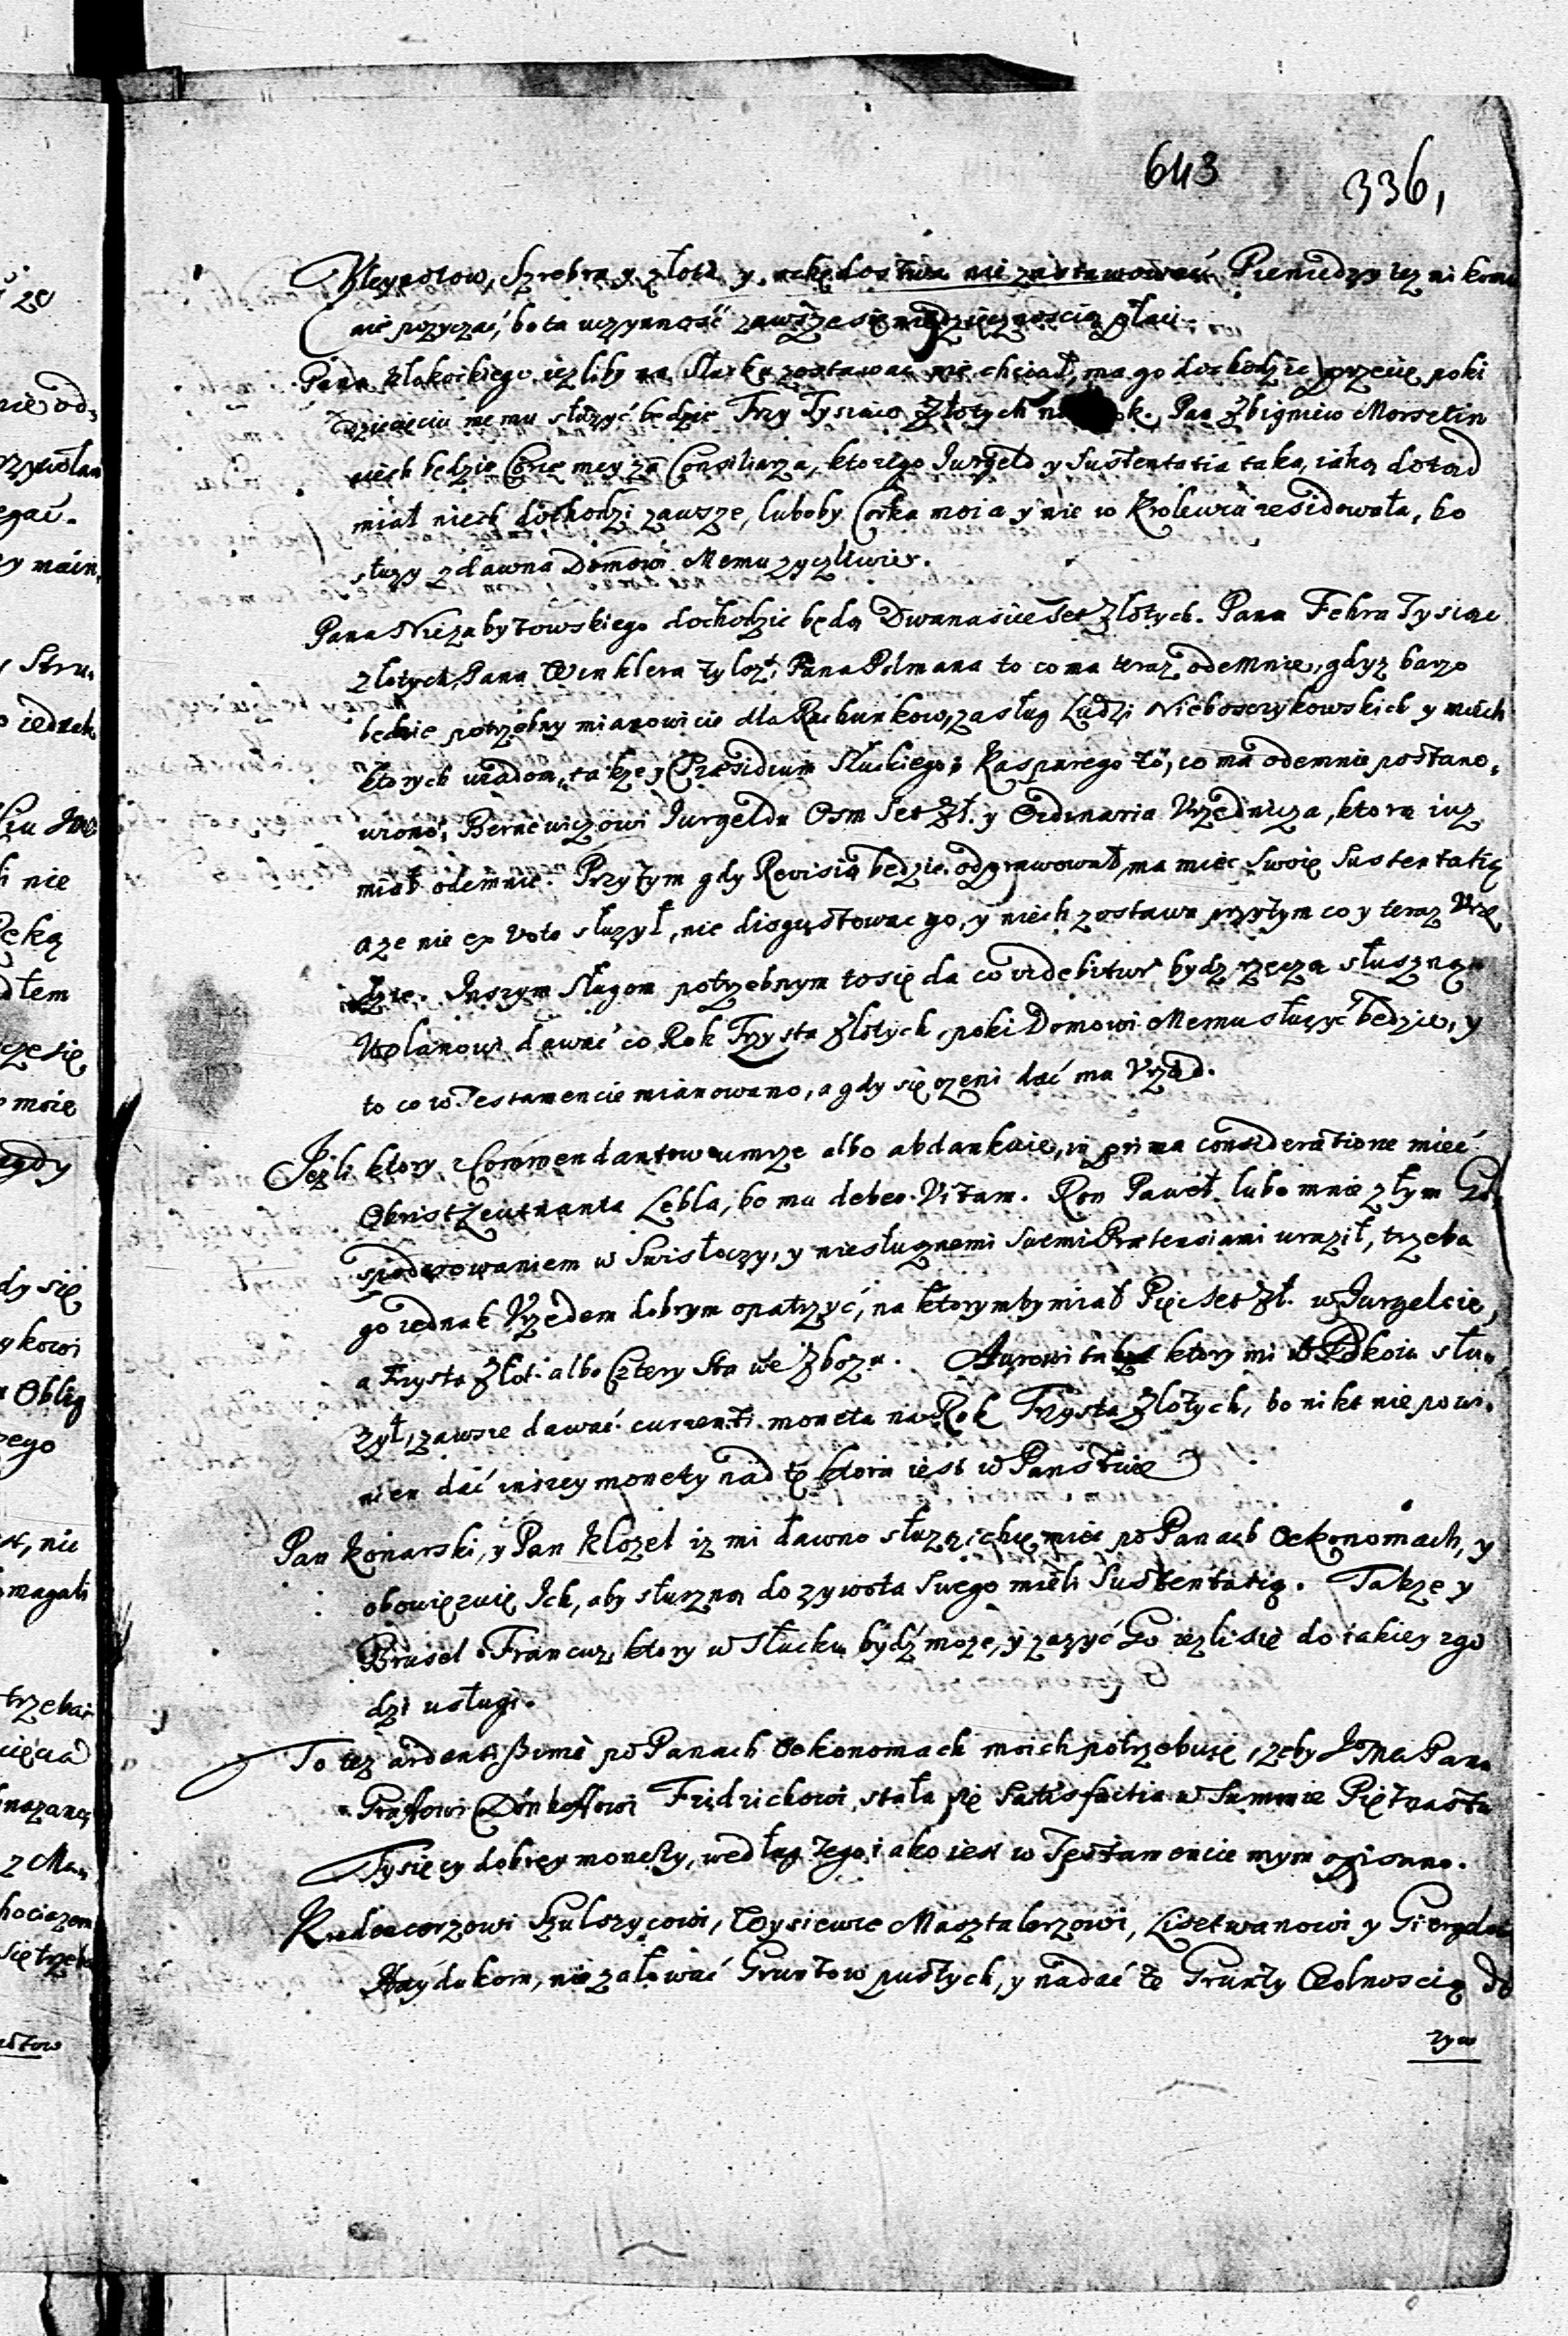 643 336,
Kleynotow, Szrebra y złota y ochędostwa nie zastawować Pieniędzy tez nikomu
nie pozyczać, bo ta uczynność zawsze się niewdzięcznoscią płaci.
Pana Kłokockiego iezliby na Słucku zostawać nie chciał, ma go dochodzic przecie poki
Dziecięciu memu słuzyć będzie Trzy Tysiąca Złotych na k. Pan Zbigniew Morsztin
niech będzie Corce mey za Consiliarza, ktorego Jurgeld y Sustentatia taka, iaką dotąd
miał niech dochodzi zawsze, luboby Corka moia y nie w Krolewcu residowała, bo
słuzy zdawna Domowi Memu zyczliwie.
Pana Niezabytowskiego dochodzic będą Dwanascie set Złotych. Pana Fehra Tysiąc
złotych, Pana Winklera tyloz, Pana Polmana to co ma teraz odemnie, gdyz barzo
będzie potrzebny mianowicie dla Rachunkow, zasług Ludzi Nieboszczykowskich y mоich
ktorych wiadom, także y Præsidium Słuckiego; Kasparego to, co ma odemnie postano,
wiono, Bernowiczowi Jurgeldu Osm set Zł. y Ordinaria Urzędnicza, ktorą iuz
miał odemnie. Przytym gdy Revisią będzie odprawował, ma miec Swoię Sustentatią
a ze nie ex voto słuzył, nie disgustowac go, y niech zostawa przytym co y teraz Urzę
dzie. Inszym Sługom potrzebnym to się da co videbitur bydz rzeczą słuszną.
Wolanowi dawać co Rok Trzysta Złotych, poki Domowi Memu słuzyć będzie, y
to co w Testamencie mianowano, a gdy się ozeni dać ma Urząd.
Jezli ktory z Commendantow umrze albo abdankuie, in prima consideratione mieć
Obristleutnanta Lebla, bo mu debeo Vitam. Ron Paweł lubo mnie złym Go
spodarowaniem w Swisłoczy, y niesłusznemi Swemi Prætensiami uraził, trzeba
go iednak Urzędem dobrym opatrzyć, na ktorymby miał Pięc set Zł. w Jurgelcie,
a Trzysta Złot. albo Cztery sta we Zbozu. ktory mi w Pokoiu słu,
zył, zawsze dawać currenti moneta na Rok Trzysta Złotych, bo nikt nie powi,
nien dać inszey monety nad tę ktora iest w Panstwie
Pan Konarski, y Pan Klozel iz mi dawno słuzą, chcę miec po Panach Oekonomach, y
obowięzuię Ich, aby słuszną do zywota Swego mieli Sustentatią. Takze y
Brusel Francuz, ktory w Słucku bydź moze, y zazyć Go iezli się do iakiey zgo
dzi usługi.
To tez ardentissimè po Panach Oekonomach moich potrzebuię, zeby JoMci Panu
Graffowi Dönhoffowi Fridrichowi stała się Satisfactia w Summie Piętnastu
Tysięcy dobrey monety, według tego iako iest w Testamencie mym opisano.
Kredencerzowi Szulszycowi, Maształerzowi, y
Haydukom, nie załować Gruntow pustych, y nadać te Grunty Wolnoscią do
zyw